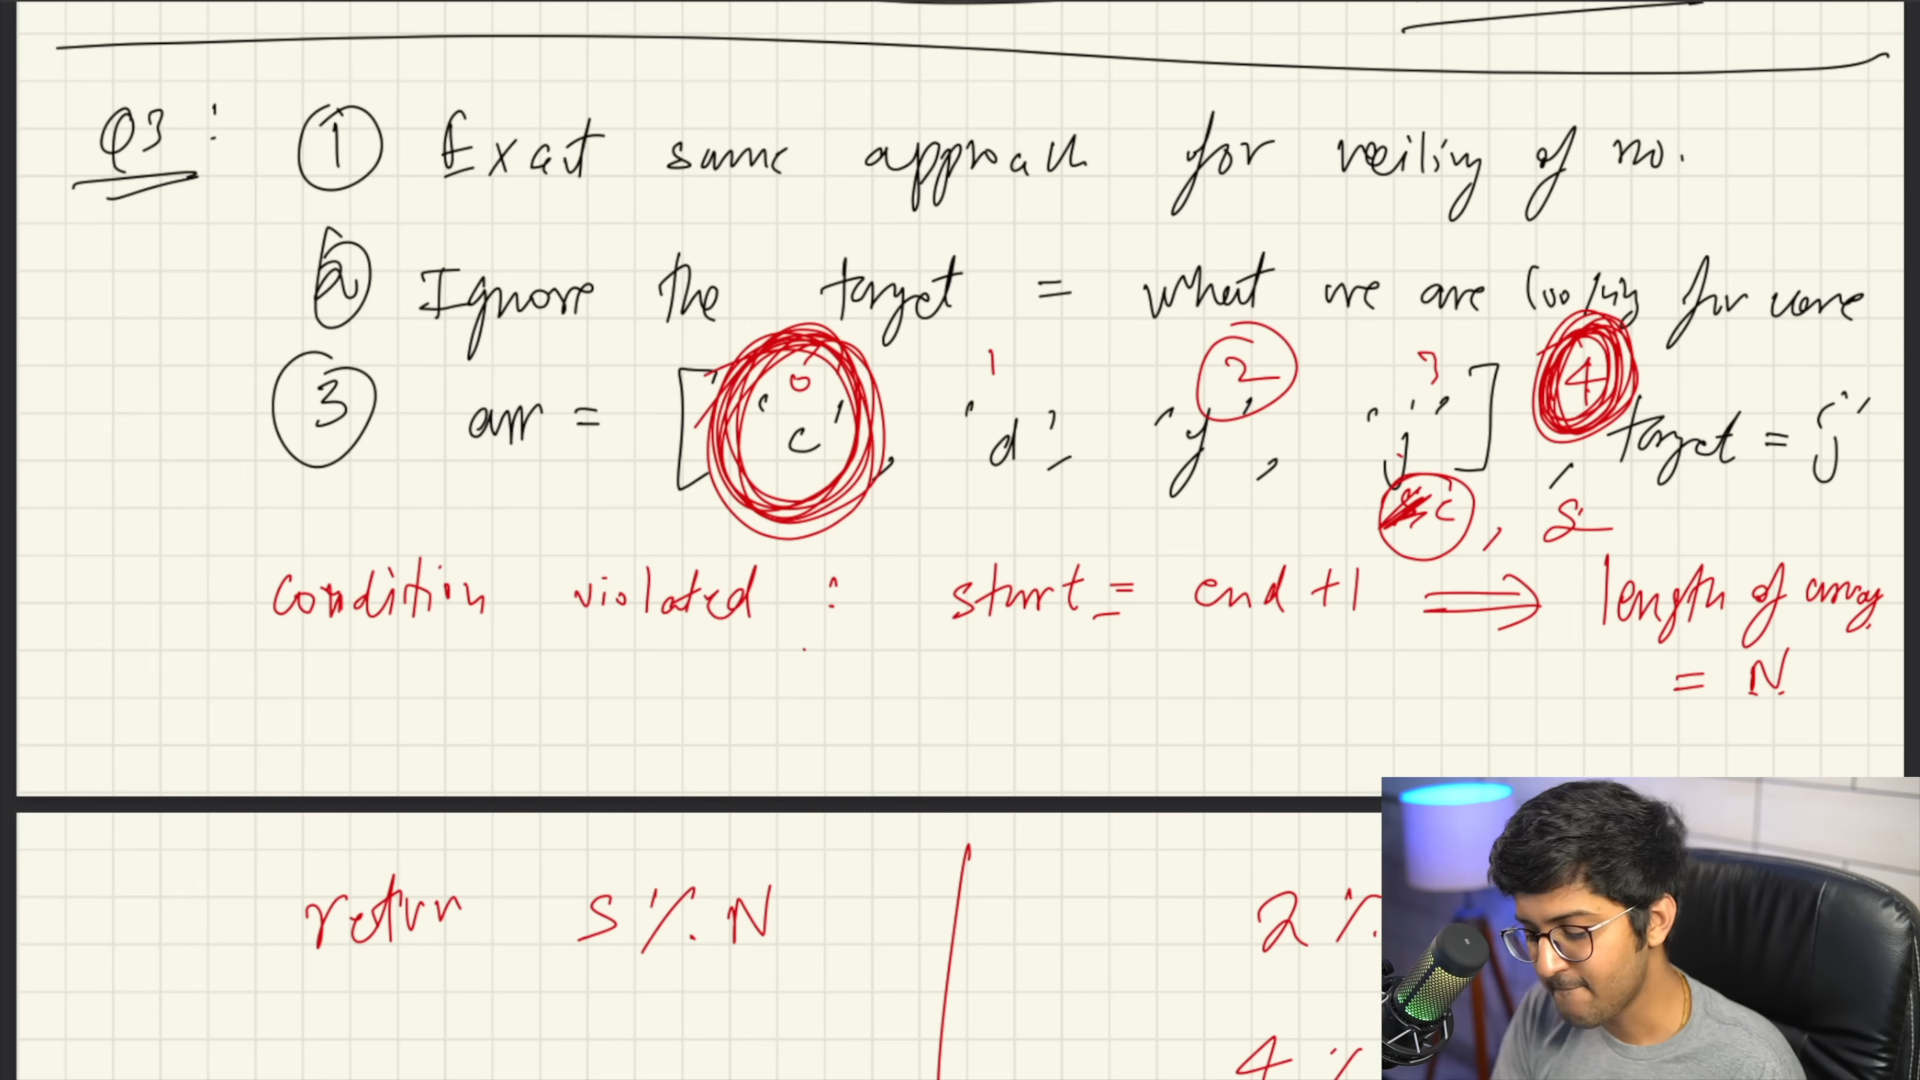 Q3 : ① Exact same approach for ceiling of no.
② Ignore the target = what we are looking for
0 1 2 3 4
③ arr = ['c', 'd', 'y', 'j'] , target = j
c , S
condition violated : start = end + 1 ⟹ length of array
= N
return S % N
2 %
4 %